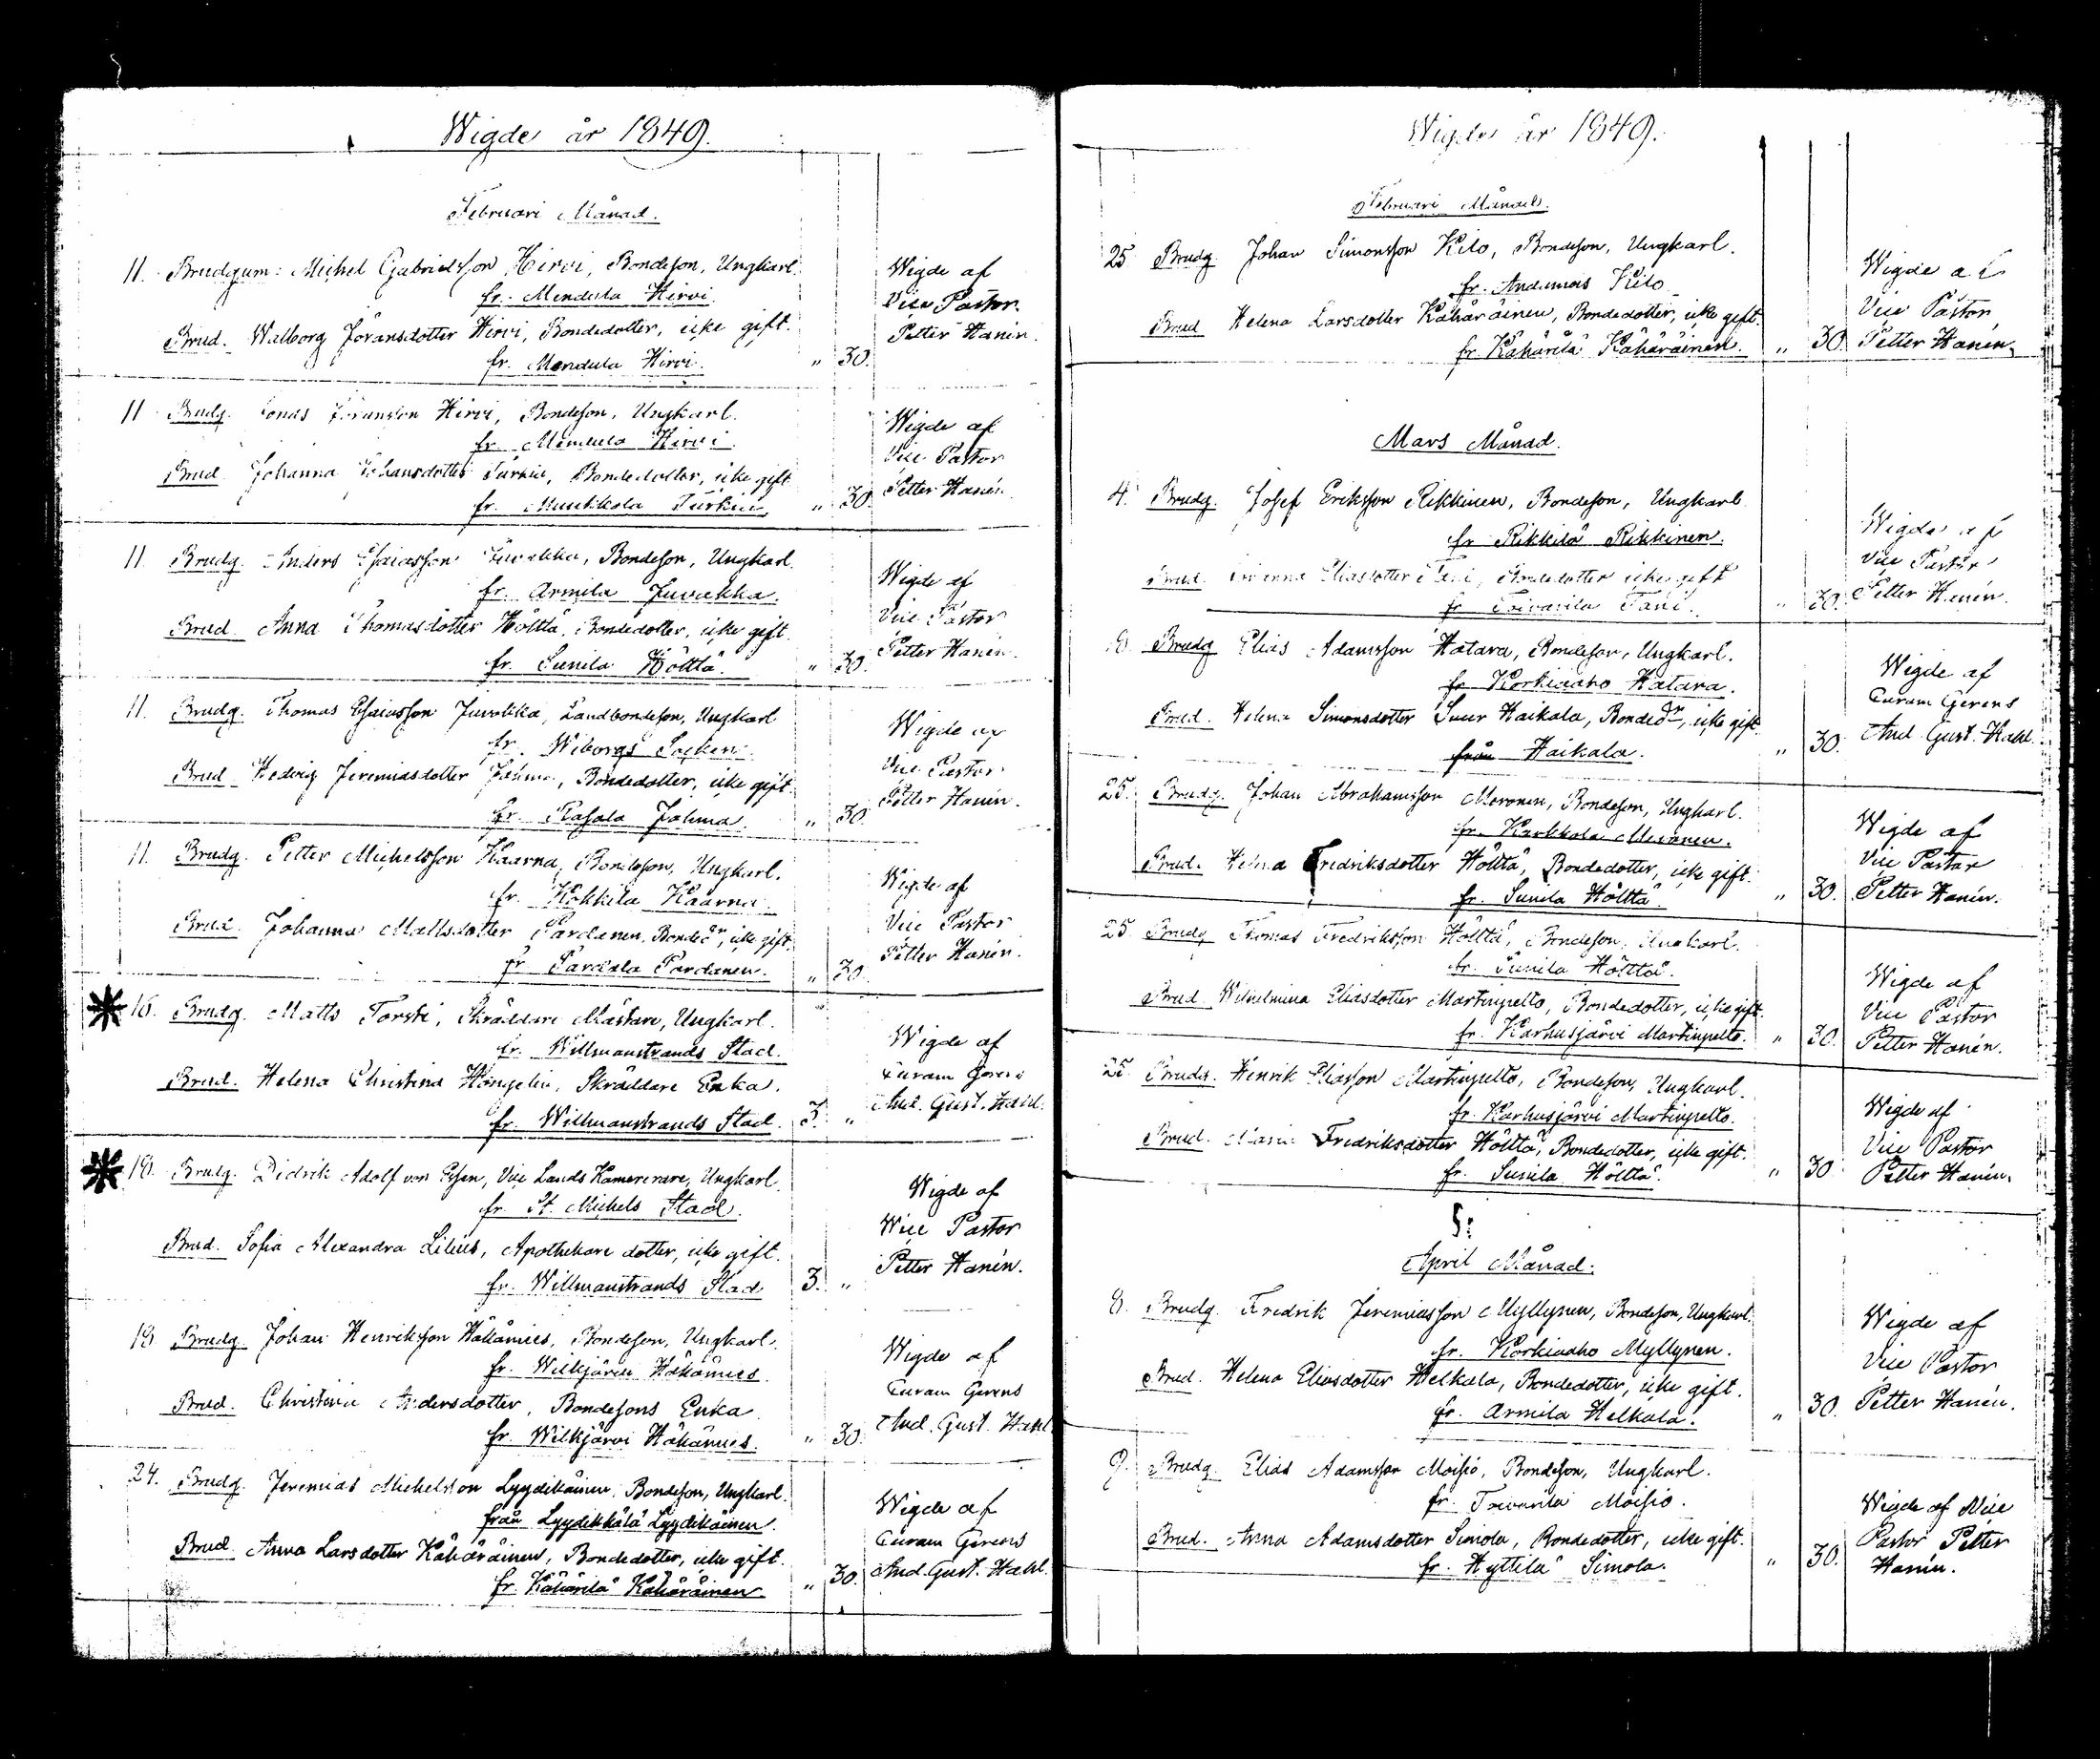 Wigde år 1849.
Februari Månad.
11. Brudgum: Michel Gabrielsson Hirvi, Bondeson, Ungkarl.
fr. Mendula Hirvi.
Brud. Walborg Jöransdotter Hirvi, Bondedotter, icke gift.
fr. Mendula Hirvi. " 30.
Wigde af
Vice Pastor.
Petter Hanén.
11 Brudg. Jonas Jöransson Hirvi, Bondeson, Ungkarl.
fr Mendula Hirvi.
Brud Johanna Johansdotter Turkia, Bondedotter, icke gift
fr. Muukkola Turkia, " 30.
Wigde af
Vice Pastor
Petter Hanén.
11. Brudg. Anders Esaiasson Juvakka, Bondeson, Ungkarl.
fr. Armila Juvakka.
Brud. Anna Thomasdotter Hölttä, Bondedotter, icke gift.
fr. Sunila Hölttä. " 30.
Wigde af
Vice Pastor
Petter Hanén.
11. Brudg. Thomas Esaiasson Juvakka, Landbondeson, Ungkarl
fr. Wiborgs Socken.
Brud Hedvig Jeremiasdotter Johma, Bondedotter, icke gift.
fr. Rasala Johma. " 30.
Wigde af
Vice Pastor
Petter Hanén.
11. Brudg. Petter Michelsson Kaarna, Bondeson, Ungkarl.
fr. Hökkilä Kaarna.
Brud. Johanna Mattsdotter Pardanen, Bondedr, icke gift.
fr Pardala Pardanen. " 30.
Wigde af
Vice Pastor
Petter Hanén.
16. Brudg. Matts Torsti, Skräddare Mästare, Ungkarl.
fr. Willmanstrands Stad.
Brud. Helena Christina Skräddare Enka.
fr. Willmanstrands Stad. 3. "
Wigde af
Curam Gerens
And. Gust. Hahl.
18. Brudg. Didrik Adolf von Essen, Vice Lands Kamererare, Ungkarl
fr. St. Michels Stad.
Brud. Sofia Alexandra Lilius, Apothekare dotter, icke gift.
fr. Willmanstrands Stad 3. "
Wigde af
Vice Pastor
Petter Hanén.
18 Brudg. Johan Henriksson Häkämies, Bondeson, Ungkarl.
fr. Wilkjärvi Häkämies.
Brud. Christina Andersdotter, Bondesons Enka
fr. Wilkjärvi Häkämies. " 30.
Wigde af
Curam Gerens
And. Gust. Hahl
24. Brudg. Jeremias Michelsson Lyydikäinen, Bondeson, Ungkarl.
från Lyydikkälä Lyydikäinen.
Brud. Anna Larsdotter Kähäräinen, Bondedotter, icke gift.
fr. Kähärilä Kähäräinen " 30.
Wigde af
Curam Gerens
And. Gust. Hahl.
Wigde år 1849.
Februari Månad.
25 Brudg. Johan Simonsson Kilo, Bondeson, Ungkarl.
fr. Kilo
Brud Helena Larsdotter Kähäräinen, Bondedotter, icke gift.
fr. Kähärilä Kähäräinen. " 30.
Wigde af
Vice Pastor
Petter Hanén.
Mars Månad.
4. Brudg. Josef Eriksson Rikkinen, Bondeson, Ungkarl
fr Rikkilä Rikkinen.
Brud. Eliasdotter Tani, Bondedotter icke gift
fr Toivarila Tani. " 30.
Wigde af
Vice Pastor
Petter Hanén.
8. Brudg Elias Adamsson Hatara, Bondeson, Ungkarl.
fr Korkiaaho Hatara.
Brud. Helena Simonsdotter Suur Haikala, Bondedr, icke gift
från Haikala. " 30.
Wigde af
Curam Gerens
And. Gust. Hahl.
25. Brudg. Johan Abrahamsson Moronen, Bondeson, Ungkarl.
fr. Karkkola Moronen.
Brud. Helena Fredriksdotter Hölttä, Bondedotter, icke gift.
fr. Sunila Hölttä. " 30.
Wigde af
Vice Pastor
Petter Hanén.
25 Brudg Thomas Fredriksson Hölttä, Bondeson, Ungkarl.
fr. Sunila Hölttä.
Brud Wilhelmina Eliasdotter Martinpelto, Bondedotter, icke gift.
fr. Karhusjärvi Martinpelto. " 30.
Wigde af
Vice Pastor
Petter Hanén.
25 Brudg. Henrik Eliasson Martinpelto, Bondeson, Ungkarl.
fr. Karhusjärvi Martinpelto.
Brud. Maria Fredriksdotter Hölttä, Bondedotter, icke gift.
fr. Sunila Hölttä. " 30
Wigde af
Vice Pastor
Petter Hanén.
§:
April Månad.
8. Brudg. Fredrik Jeremiasson Myllynen, Bondeson, Ungkarl.
fr. Korkiaaho Myllynen.
Brud. Helena Eliasdotter Helkala, Bondedotter, icke gift.
fr. Armila Helkala. " 30.
Wigde af
Vice Pastor
Petter Hanén.
9. Brudg. Elias Adamsson Moisio, Bondeson, Ungkarl.
fr. Toivarila Moisio.
Brud. Anna Adamsdotter Simola, Bondedotter, icke gift.
fr. Hyttilä Simola. " 30.
Wigde af Vice
Pastor Petter
Hanén.